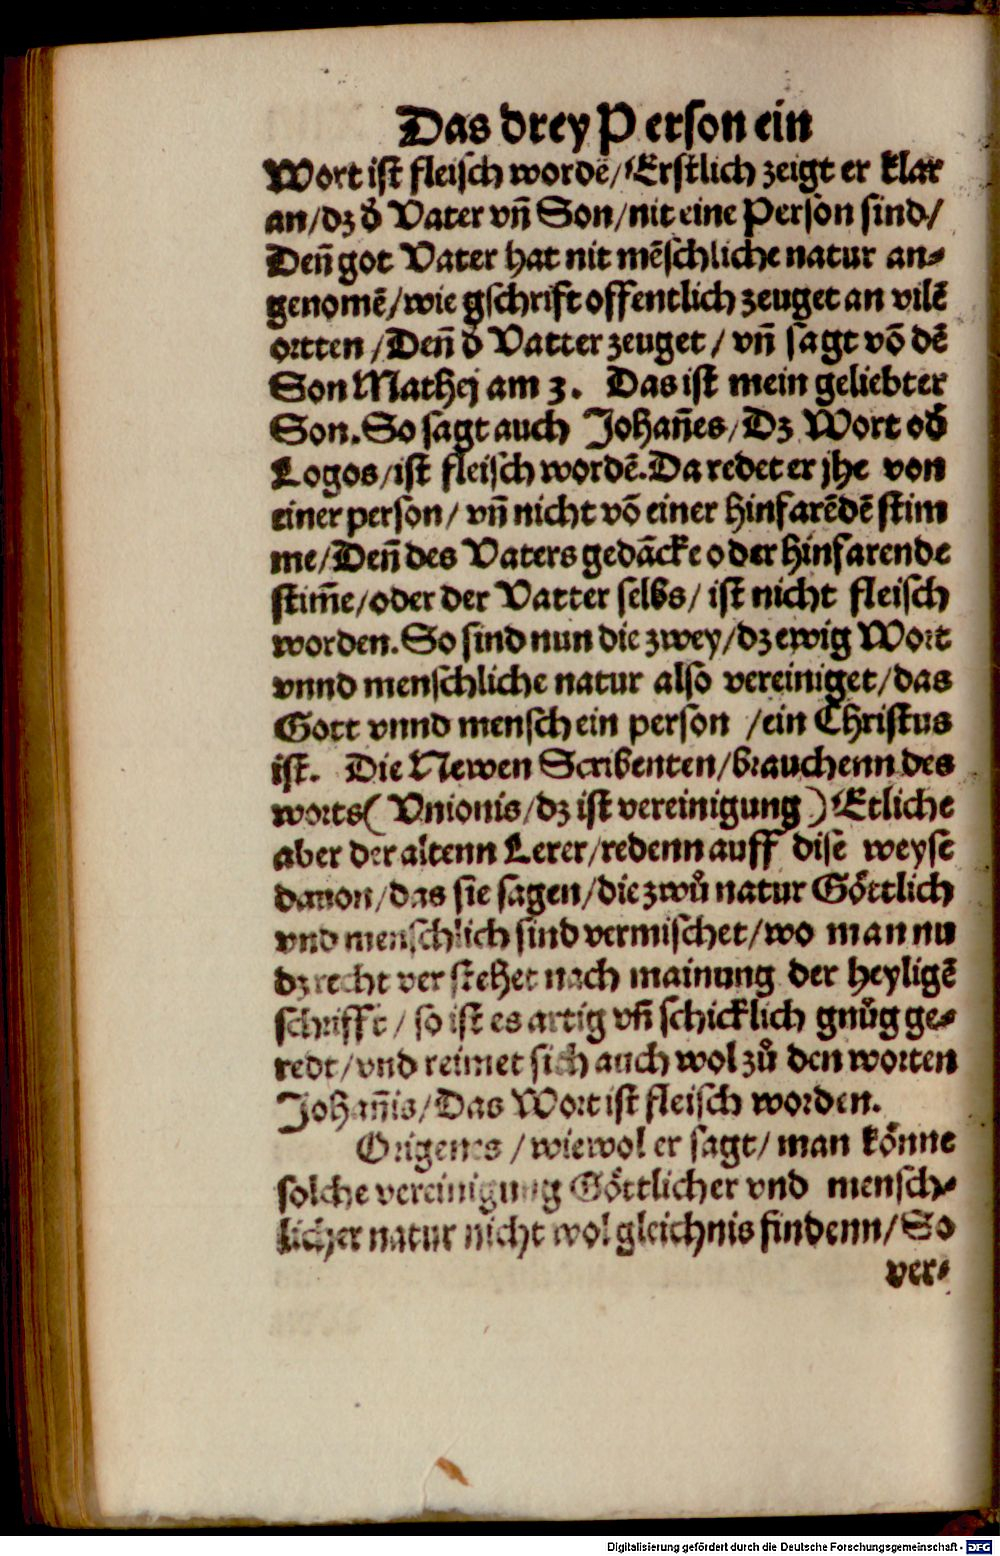 Das drey Person ein
Wort ist fleisch wordē/Erstlich zeigt er klar
an/dz d̕ Vater vñ Son/nit eine Person sind/
Deñ got Vater hat nit mēschliche natur an⸗
genomē/wie gschrift offentlich zeuget an vilē
ortten/Deñ d̕ Vatter zeuget/ vñ sagt vō dē
Son Mathej am 3. Das ist mein geliebter
Son. So sagt auch Johañes/Dz Wort od̕
Logos/ist fleisch wordē. Da redet er jhe von
einer person/ vñ nicht vō einer hinfarēdē stim
me/Deñ des Vaters gedācke oder hinfarende
stim̃e/oder der Vatter selbs/ ist nicht fleisch
worden. So sind nun die zwey/dz ewig Wort
vnnd menschliche natur also vereiniget/das
Gott vnnd mensch ein person /ein Christus
ist. Die Newen Scribenten/brauchenn des
worts( Vnionis/dz ist vereinigung) Etliche
aber der altenn Lerer/redenn auff dise weyse
dauon/das sie sagen/die zwů natur Göttlich
vnd menschlich sind vermischet/wo man nu
dz recht verstehet nach mainung der heyligē
schrifft/ so ist es artig vñ schicklich gnůg ge⸗
redt/vnd reimet sich auch wol zů den worten
Johañis/Das Wort ist fleisch worden.
Origenes /wiewol er sagt/man könne
solche vereinigung Göttlicher vnd mensch⸗
licher natur nicht wol gleichnis findenn/So
ver⸗
Digitalisierung gefördert durch die Deutsche Forschungsgemeinschaft - DFG